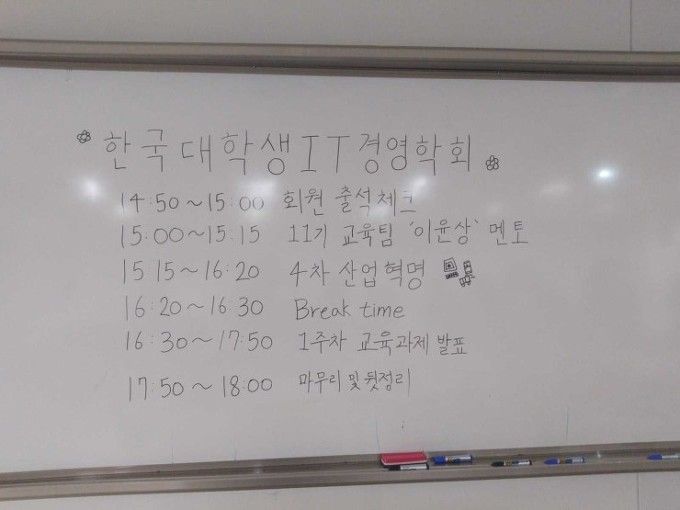 한국대학생IT경영학회
14:50~15:00 회원 출석체크
15:00~15:15 11기 교육팀 '이윤상' 멘토
15 15~16:20 4차 산업혁명
16:20~16:30 Break time
16:30~17:50 1주차 교육과제 발표
17:50~18:00 마무리 및 뒷정리